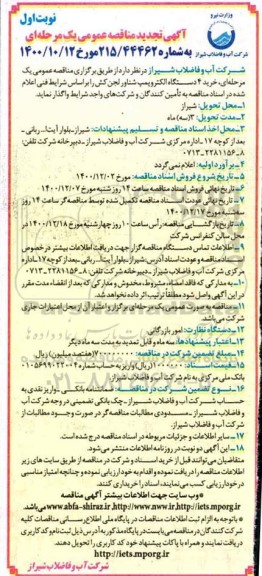 وزارت نیرو
شرکت آب و فاضلاب شیراز
نوبت اول
آگهی تجدید مناقصه عمومی یک مرحله‌ای
به شماره ۲۱۵/۴۴۴۶۲ مورخ ۱۴۰۰/۱۰/۱۲
شرکت آب و فاضلاب شیراز در نظر دارد از طریق برگزاری مناقصه عمومی یک
مرحله‌ای خرید ۴ دستگاه الکتروپمپ شناور لجن کش را بر اساس شرایط فنی اعلام
شده در اسناد مناقصه به تأمین کنندگان و شرکت‌های واجد شرایط واگذار نماید.
۱- محل تحویل: شیراز
۲- مدت تحویل: ۳ (سه) ماه
۳- محل اخذ اسناد مناقصه و تسلیم پیشنهادات: شیراز ـ بلوار آیت‌ا... ربانی ـ
بعد از کوچه ۱۷ ـ اداره مرکزی شرکت آب و فاضلاب شیراز ـ دبیرخانه شرکت تلفن:
۸ـ۳۲۲۸۱۱۵۶ـ۰۷۱۳
۴- برآورد اولیه: اعلام نمی‌گردد
۵- تاریخ شروع فروش اسناد مناقصه: مورخ ۱۴۰۰/۱۲/۰۲
۶- تاریخ نهائی فروش اسناد مناقصه ساعت ۱۴ روز شنبه مورخ ۱۴۰۰/۱۲/۰۷
۷- تاریخ نهائی عودت اسناد مناقصه تکمیل شده توسط مناقصه‌گر ساعت ۱۴ روز
سه‌شنبه مورخ ۱۴۰۰/۱۲/۱۷
۸- تاریخ بازگشایی مناقصه: رأس ساعت ۱۰ روز چهارشنبه مورخ ۱۴۰۰/۱۲/۱۸ در
محل سالن کنفرانس شرکت
۹- اطلاعات تماس دستگاه مناقصه‌گزار جهت دریافت اطلاعات بیشتر در خصوص
اسناد مناقصه و عودت اسناد آدرس: شیراز ـ بلوار آیت‌ا... ربانی ـ بعد از کوچه ۱۷ ـ اداره
مرکزی شرکت آب و فاضلاب شیراز ـ دبیرخانه شرکت تلفن:
۱۰- به مدارکی که فاقد امضاء، مشروط، مخدوش و مدارکی که بعد از انقضاء مدت مقرر
در این آگهی واصل شود مطلقاً ترتیب اثر داده نخواهد شد.
۱۱- مناقصه به صورت عمومی یک مرحله‌ای برگزار و اعتبار آن از محل اعتبارات جاری
شرکت می‌باشد.
۱۲- دستگاه نظارت: امور بازرگانی
۱۳- اعتبار پیشنهادها: سه ماه و قابل تمدید به مدت سه ماه دیگر
۱۴- مبلغ تضمین شرکت در مناقصه: ۷۰۰/۰۰۰/۰۰۰ (هفتصد میلیون) ریال
۱۵- قیمت اسناد:
بانک ملی مرکزی به نام شرکت آب و فاضلاب شیراز
۱۶- نوع تضمین شرکت در مناقصه: ضمانتنامه بانکی ـ واریز نقدی به
حساب شرکت آب و فاضلاب شیراز ـ چک بانکی تضمینی در وجه شرکت آب
و فاضلاب شیراز ـ مسدودی مطالبات مناقصه‌گر در صورت وجود مطالبات از
شرکت آب و فاضلاب شیراز.
۱۷- سایر اطلاعات و جزئیات مربوطه در اسناد مناقصه درج شده است.
۱۸- این آگهی دو نوبت در روزنامه اطلاعات منتشر می‌شود.
متقاضیان می‌توانند قبل از خرید اسناد و شرکت در مناقصه از طریق سایت‌های زیر
اطلاعات مناقصه را دریافت نموده و اقدام به خودارزیابی نموده و چنانچه امتیاز مناسبی
در خودارزیابی کسب می‌نمایند، اسناد را خریداری کنند.
*وب سایت جهت اطلاعات بیشتر آگهی مناقصه
http://iets.mporg.ir http://www.nww.ir www.abfa-shiraz.ir می‌باشد.
* با توجه به الزام ثبت اطلاعات مناقصات در پایگاه ملی اطلاع رسانی مناقصات کلیه
شرکت کنندگان در مناقصه می‌بایست در پایگاه مذکور به آدرس ذیل ثبت نام و کد کاربری
دریافت نمایند و همراه با پاکات پیشنهاد خود کد کاربری را تحویل دهند.
http://iets.mporg.ir
شرکت آب و فاضلاب شیراز